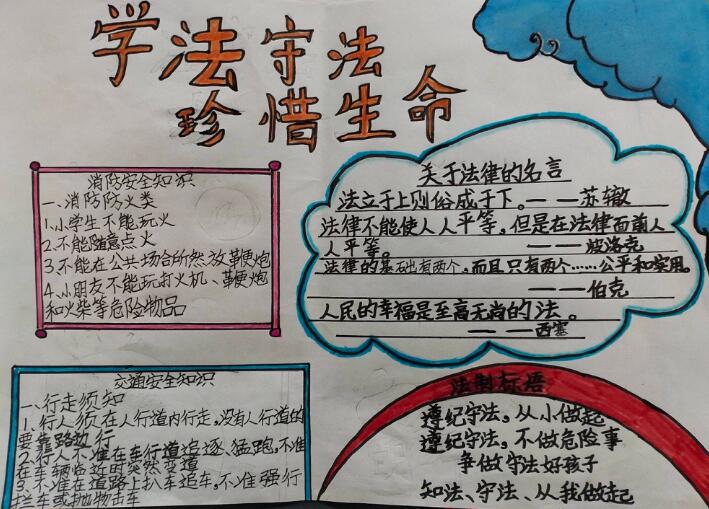 学法守法
珍惜生命
消防安全知识
一、消防防火类
1、小学生不能玩火
2、不能随意点火
3、不能在公共场合的然放鞭炮
4、小朋友不能玩打火机、鞭炮
和火柴等危险物品
关于法律的名言
法立于上则俗成于下。——苏辙
法律不能使人人平等，但是在法律面前人
人平等。——波洛克
法律的基础也有两个，而且只有两个……公平和实用。
——伯克
人民的幸福是至高无尚的法。
——西塞
交通安全知识
一、行走须知
1、行人须在人行道内行走，没有人行道的
要靠路边行
2、行人不准在车行道追逐、猛跑，不准
在车辆临近时突然变道
3、不准在道路上扒车追车，不准强行
拦车或抛物击车
法制标语
遵纪守法，从小做起
遵纪守法，不做危险事
争做守法好孩子
知法、守法、从我做起